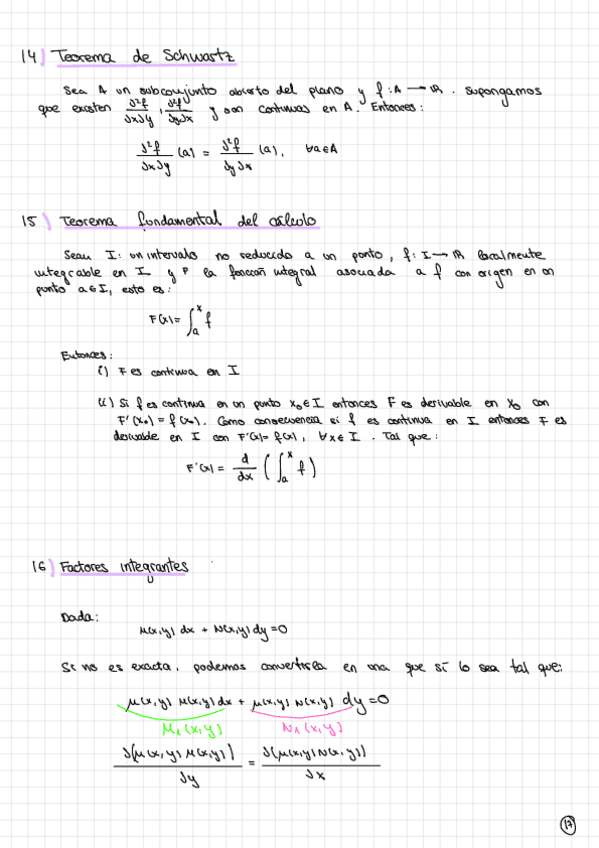 14) Teorema de Schwartz
Sea A un subconjunto abierto del plano y f: A → ℝ. Supongamos
que existen ∂²f/∂x∂y, ∂²f/∂y∂x y son continuas en A. Entonces:
∂²f/∂x∂y (a) = ∂²f/∂y∂x (a), ∀a∈A
15) Teorema fundamental del cálculo
Sean I: un intervalo no reducido a un punto, f: I → ℝ localmente
integrable en I y F la función integral asociada a f con origen en un
punto a∈I, esto es:
F(x) = ∫ₐˣ f
Entonces:
i) F es continua en I
ii) Si f es continua en un punto x₀∈I entonces F es derivable en x₀ con
F'(x₀) = f(x₀). Como consecuencia si f es continua en I entonces F es
derivable en I con F'(x) = f(x), ∀x∈I. Tal que:
F'(x) = d/dx (∫ₐˣ f)
16) Factores integrantes
Dada:
M(x,y) dx + N(x,y) dy = 0
Si no es exacta, podemos convertirla en una que sí lo sea tal que:
μ(x,y) M(x,y) dx + μ(x,y) N(x,y) dy = 0
M₁(x,y) N₁(x,y)
∂(μ(x,y) M(x,y))/∂y = ∂(μ(x,y) N(x,y))/∂x
17